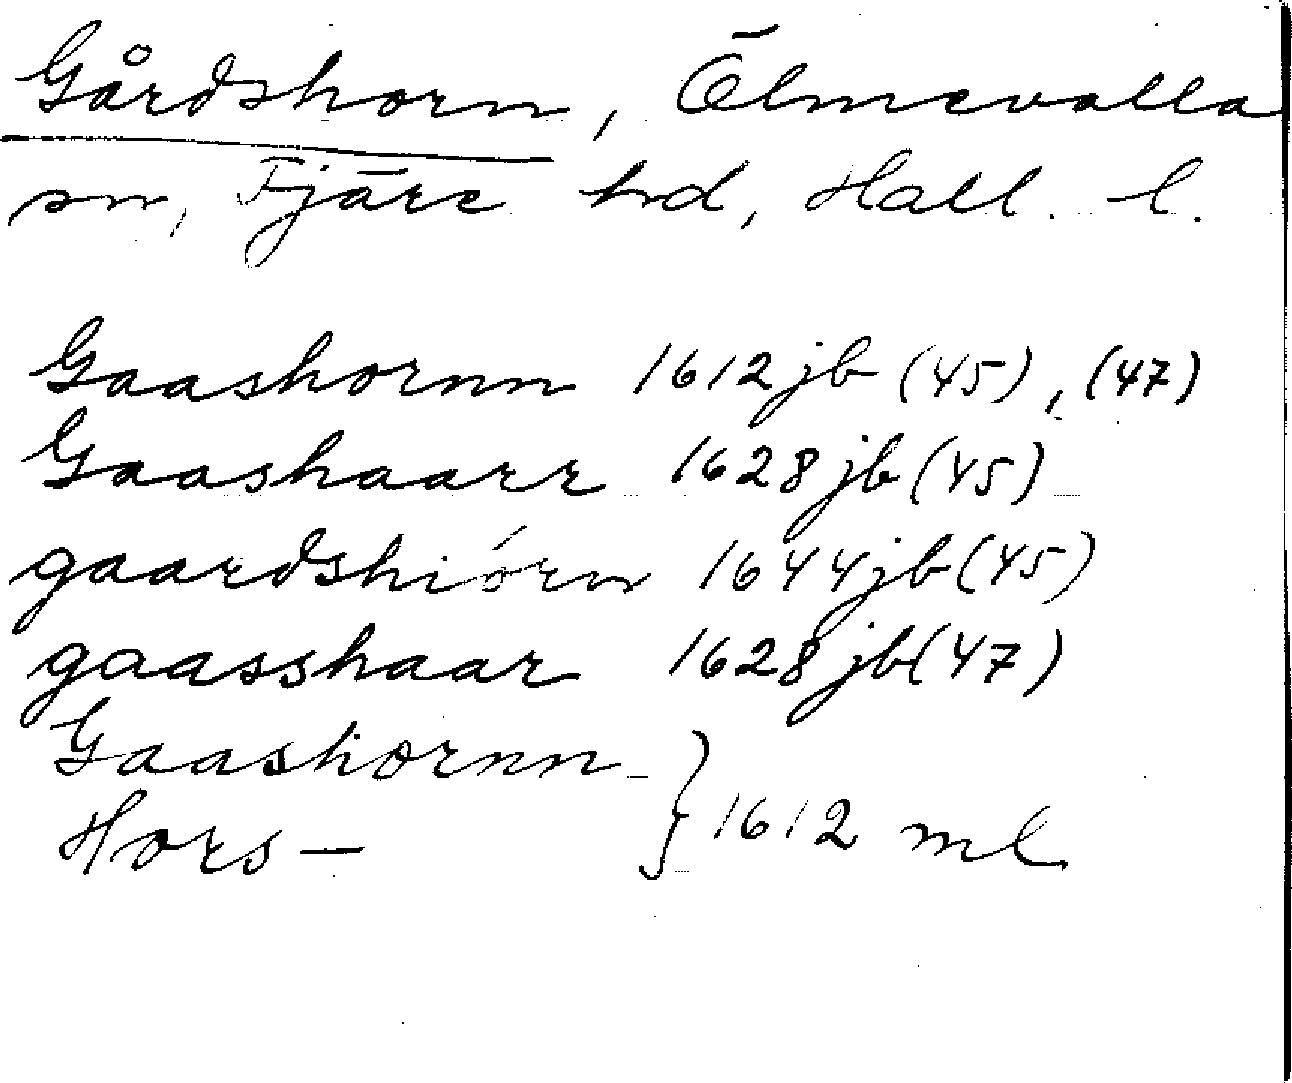 Gårdshorn, Ölmevalla
sn, Fjäre hd, Hall. l.
Gaashornn 1612 jb (45), (47)
Gaashaarr 1628 jb (45)
gaardshiórn 1644 jb (45)
gaasshaar 1628 jb (47)
Gaashornn } 1612 ml
Hors —